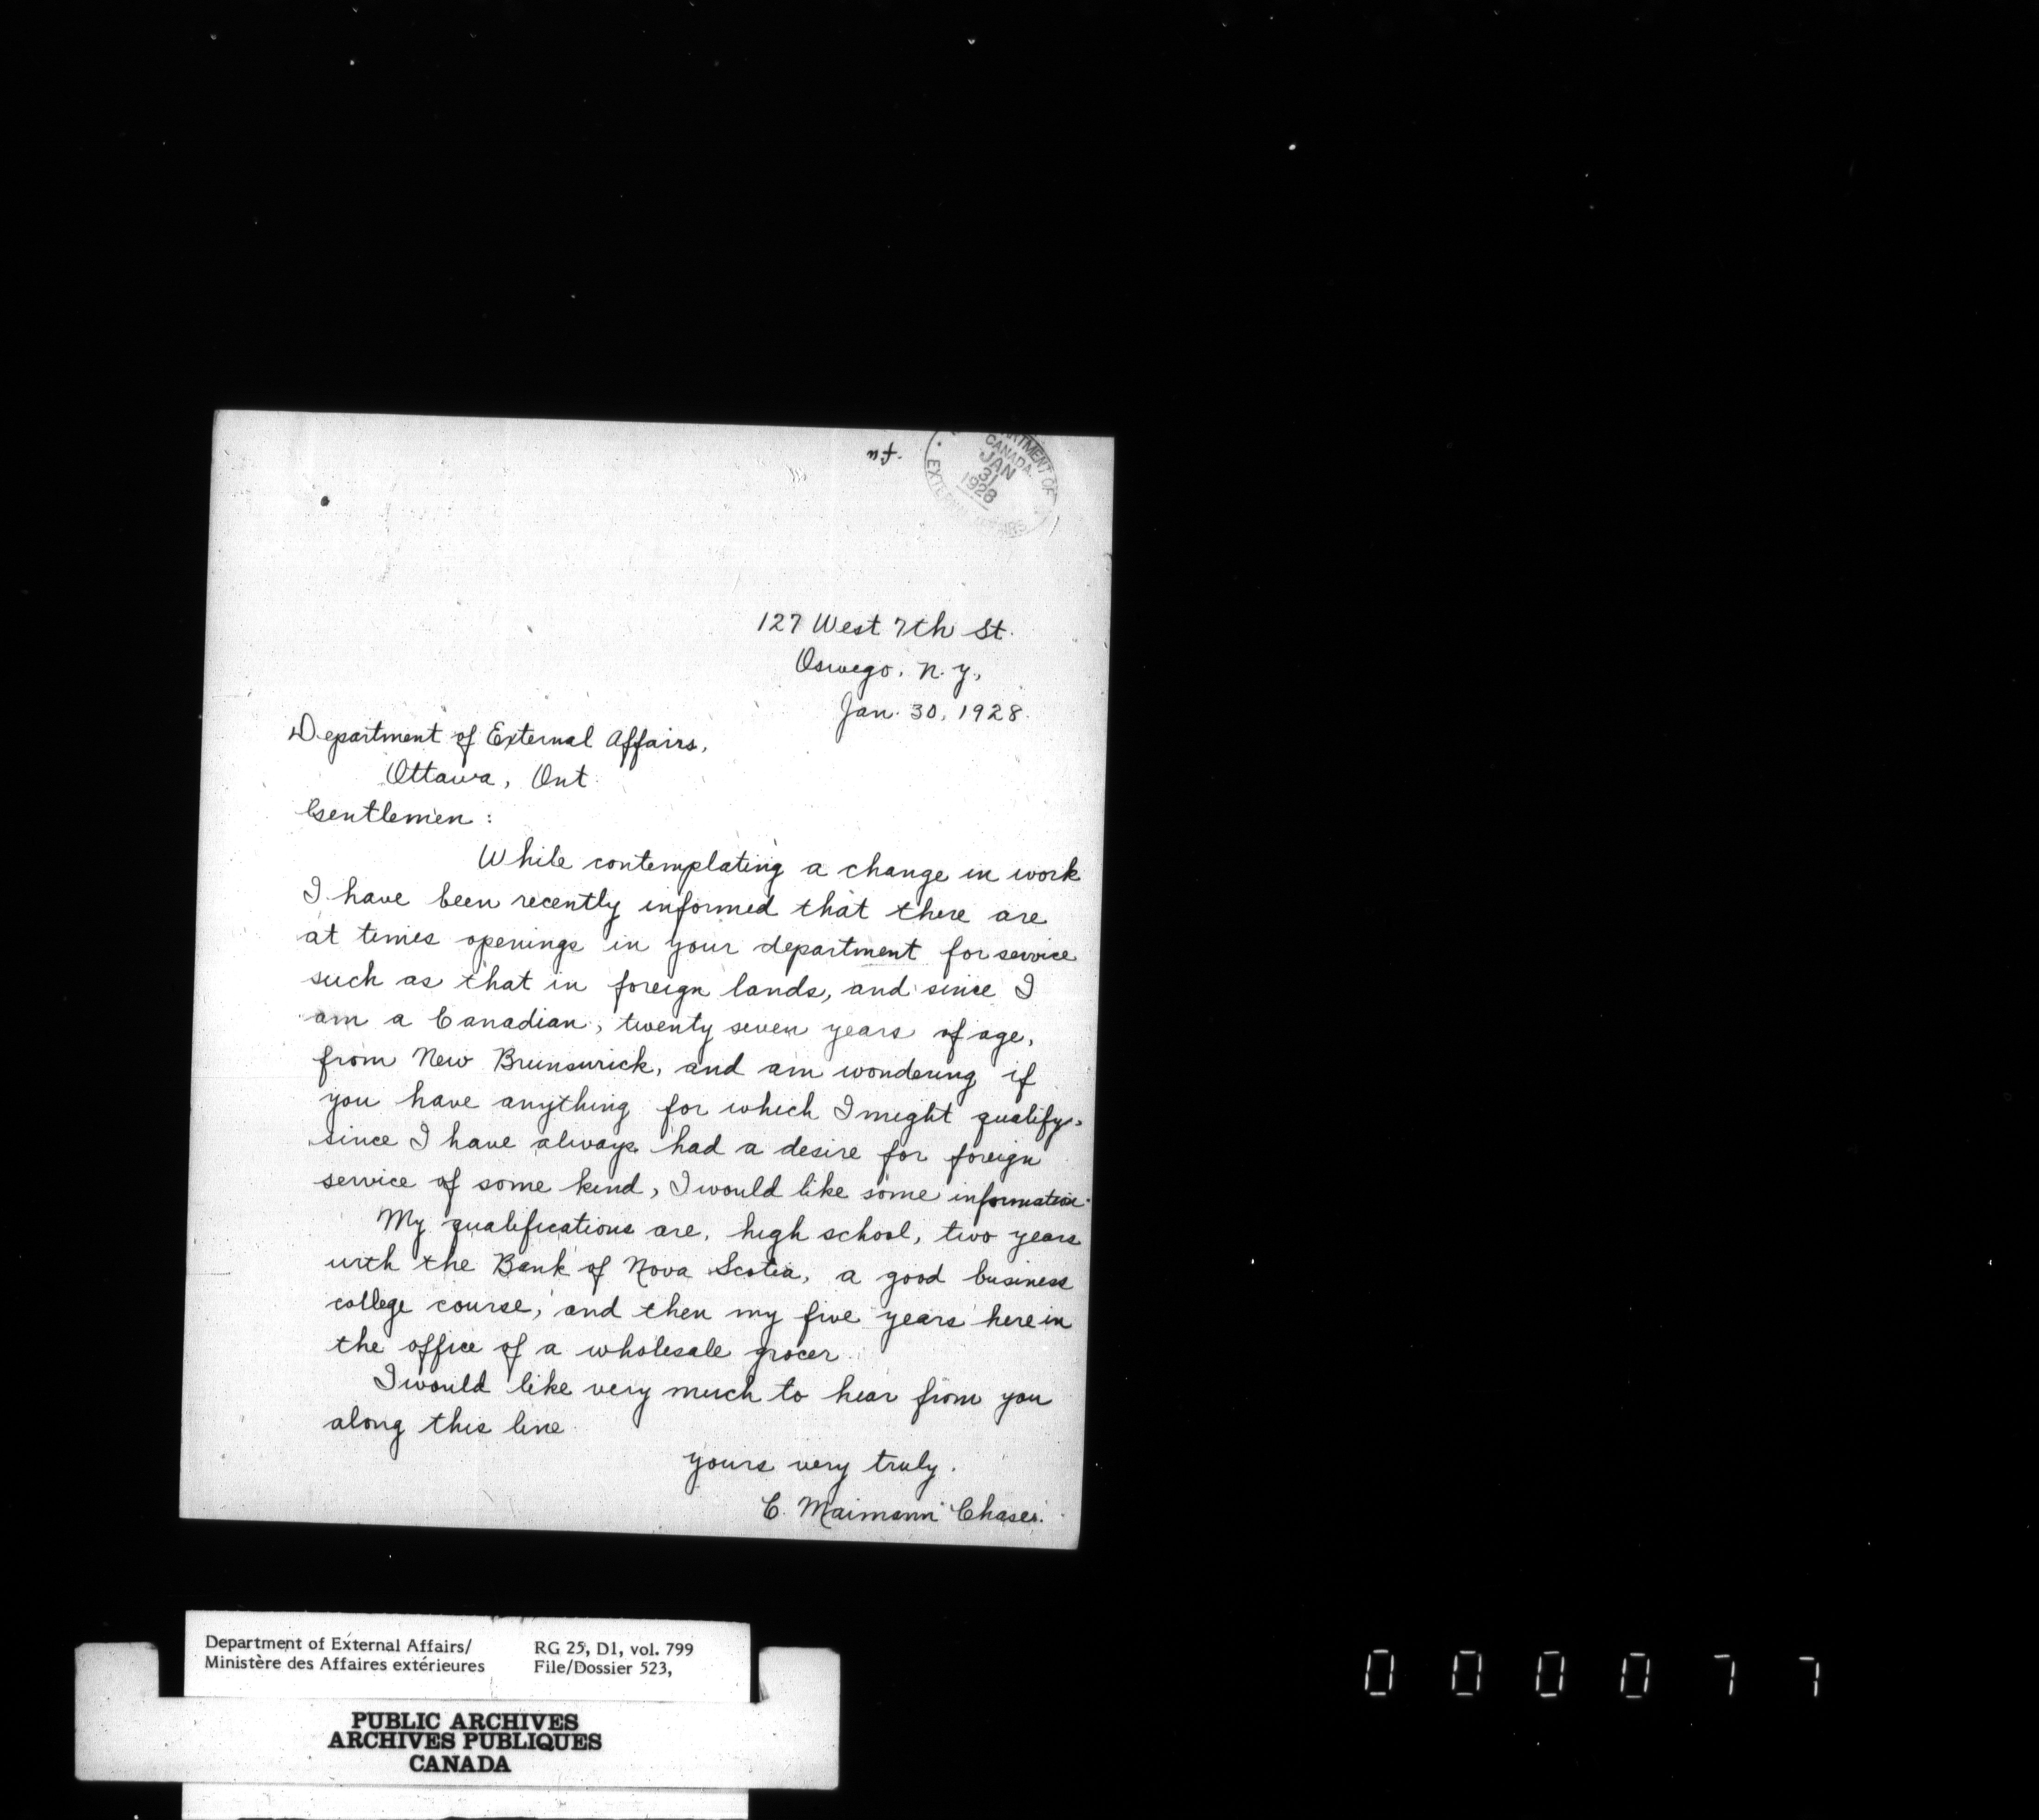 DEPARTMENT OF
CANADA
JAN
31
1928
EXTERNAL AFFAIRS
127 West 7th St.
Oswego, N.Y.,
Jan. 30, 1928.
Department of External Affairs,
Ottawa, Ont.
Gentlemen:
While contemplating a change in work
I have been recently informed that there are
at times openings in your department for service
such as that in foreign lands, and since I
am a Canadian, twenty seven years of age,
from New Brunswick, and am wondering if
you have anything for which I might qualify,
since I have always had a desire for foreign
service of some kind, I would like some information.
My qualifications are, high school, two years
with the Bank of Nova Scotia, a good business
college course, and then my five years here in
the office of a wholesale grocer.
I would like very much to hear from you
along this line.
Yours very truly.
C. Chase.
Department of External Affairs/
Ministère des Affaires extérieures
RG 25, D1, vol. 799
File/Dossier 523,
PUBLIC ARCHIVES
ARCHIVES PUBLIQUES
CANADA
000077